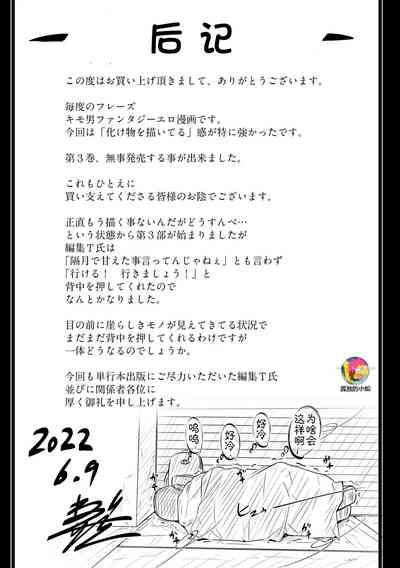 后记
この度はお買い上げ頂きまして、ありがとうございます。
毎度のフレーズ
キモ男ファンタジーエロ漫画です。
今回は「化け物を描いてる」感が特に強かったです。
第3巻、無事発売する事が出来ました。
これもひとえに
買い支えてくださる皆様のお陰でございます。
正直もう描く事ないんだがどうすんべ…
という状態から第3部が始まりましたが
編集T氏は
「隔月で甘えた事言ってんじゃねぇ」とも言わず
「行ける！　行きましょう！」と
背中を押してくれたので
なんとかなりました。
目の前に崖らしきモノが見えてきてる状況で
まだまだ背中を押してくれるわけですが
一体どうなるのでしょうか。
今回も単行本出版にご尽力いただいた編集T氏
並びに関係者各位に
厚く御礼を申し上げます。
孤独的小蛇
为啥会
这样啊
好冷
好冷
呜呜
ヒュゥ
2022
6.9